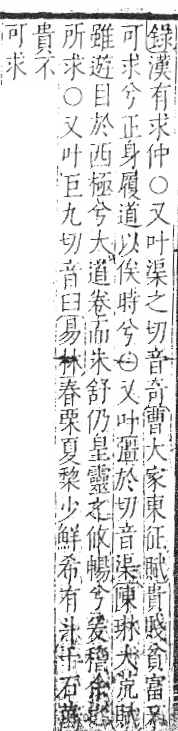 錄漢有求仲○又叶渠之切音奇曹大家東征賦貴賤貧富不
可求兮正身履道以俟時兮○又叶彊於切音渠陳琳大荒賦
雖遊目於西極兮大道卷而未舒仍皇靈之攸暢兮爰稽余之
所求○又叶巨九切音臼易林春栗夏棃少鮮希有斗千石
貴不
可求